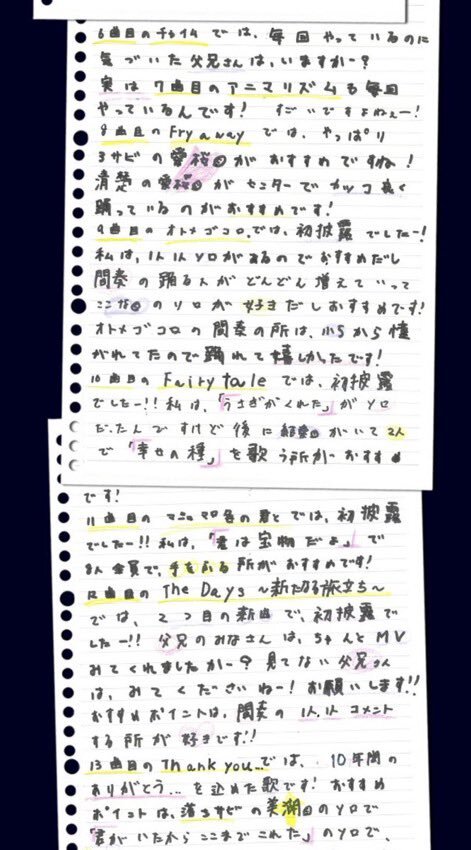 6曲目のチャイムでは、毎回やっているのに
気づいた父兄さんは、いますかー?
実は7曲目のアニマリズムも毎回
やっているんです! すごいですよねぇー!
8曲目のFry awayでは、やっぱり
3サビの愛桜がおすすめですね!
清楚の愛桜がセンターでカッコ良く
踊っているのがおすすめです!
9曲目のオトメゴコロ。では、初披露でしたー!
私は、1人1人ソロがあるのでおすすめだし
間奏の踊る人がどんどん増えていって
ここなのソロが好きだしおすすめです!
オトメゴコロの間奏の所は、小5から憧
がれてたので踊れて嬉しかったです!
10曲目のFairy taleでは、初披露
でしたー!!私は、「うさぎがくれた」がソロ
だったんですけど後に結愛がいて2人
で「幸せの種」を歌う所がおすすめ
です!
11曲目のマシュマロ色の君とでは、初披露
でしたー!!私は、「君は宝物だよ」で
8人全員で、手をふる所がおすすめです!
12曲目のThe Days~新たなる旅立ち~
では、2つ目の新曲で、初披露で
したー!!父兄のみなさんは、ちゃんとMV
みてくれましたかー?見てない父兄さん
は、みてくださいねー!お願いします!!
おすすめポイントは、間奏の1人1人コメント
する所が好きです!!
13曲目のThank you...では、10年間の
ありがとう...を込めた歌です!おすすめ
ポイントは、落ちサビの美湖のソロで
「君がいたからここまでこれた」のソロで、